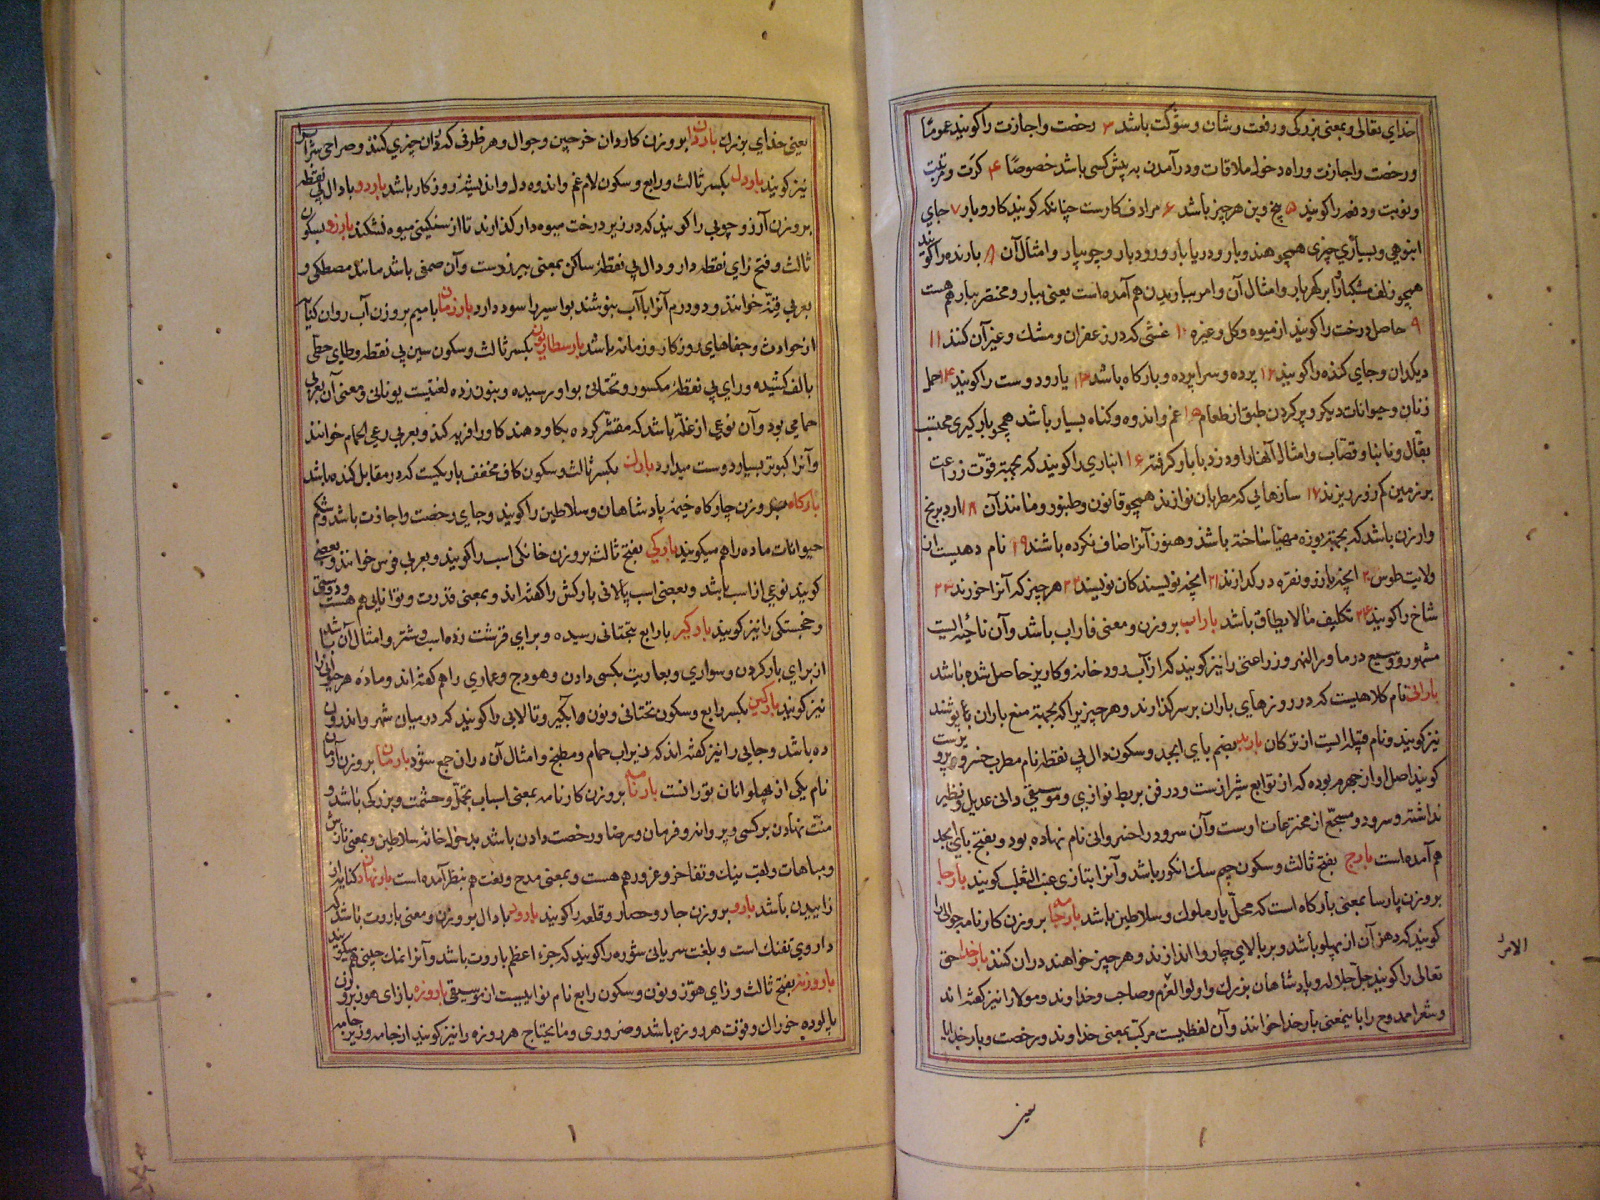 خدای تعالی و بمعنی بزرگی و رفعت و شان و شوکت باشد ۳ رخصت و اجازت را گویند عموماً
و رخصت و اجازت و راه دخول ملاقات و درآمدن به پیش کسی باشد خصوصاً ۴ کرّت و مرتبت
و نوبت و دفعه را گویند ۵ بیخ و بن هر چیز باشد ۶ مرادف کارست چنانکه گویند کار و بار ۷ جای
انبوهی و بسیاری چیزی همچو هندوبار و دریابار و رودبار و جویبار و امثال آن ۸ بارنده را گویند
همچو زلف مشکبار و ابر گهربار و امثال آن و امر بباریدن هم آمده است یعنی ببار و مختصر بیار هم هست
۹ حاصل درخت را گویند از میوه و گل و غیره ۱۰ غشی که در زعفران و مشک و غیر آن کنند ۱۱
دیکدان و جای کنده را گویند ۱۲ پرده و سراپرده و بارگاه باشد ۱۳ یار و دوست را گویند ۱۴ حمل
زنان و حیوانات دیگر و پر کردن طبق از طعام ۱۵ غم و اندوه و گناه بسیار باشد همچو بارگیری محتسب
بقال و نانبا و قصاب و امثال آنها را و دزد با بار گرفته ۱۶ انباری را گویند که بجهة قوّت زراعت
بر زمین کم زور ریزند ۱۷ سازهایی که مطربان نوازند همچو قانون و طنبور و مانند آن ۱۸ آرد برنج
و ارزن باشد که بجهة بوزه مهیّا ساخته باشد و هنوز آنرا صاف نکرده باشند ۱۹ نام دهیست از
ولایت طوس ۲۰ آنچه با زر و نقره در گدازند ۲۱ آنچه نویسندگان نویسند ۲۲ هر چیز که آنرا خورند ۲۳
شاخ را گویند ۲۴ تکلیف مالایطاق باشد باراب بر وزن و معنی فاراب باشد و آن ناحیه ایست
مشهور و وسیع در ماورالنهر و زراعتی را نیز گویند که از آب رودخانه و کاریز حاصل شده باشد
بارانی نام کلاهیست که در روزهای باران بر سر گذارند و هر چیز را که بجهة منع باران پوشند
نیز گویند و نام قبیله ایست از ترکان باربد بضم بای ابجد و سکون دال بی نقطه نام مطرب خسرو پرویزست
گویند اصل او از جهرم بوده که از توابع شیرازست و در فن بربط نوازی و موسیقی دانی عدیل و نظیر
نداشته و سرود مسجّع از مخترعات اوست و آن سرود را خسروانی نام نهاده بود و بفتح بای ابجد
هم آمده است بارج بفتح ثالث و سکون جیم سگ انگور باشد و آنرا بتازی عنب الثعلب گویند بارجا
بر وزن پارسا بمعنی بارگاه است که محلّ بار ملوک و سلاطین باشد بارجامه بر وزن کارنامه جوالی را
گویند که دهن آن از پهلو باشد و بر بالای چاروا اندازند و هر چیز خواهند در آن کنند بارخدا حق
تعالی را گویند جلّ جلاله و پادشاهان بزرگ و اولوالعزم و صاحب و خداوند و مولا را نیز گفته اند
و شعرا ممدوح را بمعنی بارخدا خوانند و آن لفظیست مرکب بمعنی خداوند و رخصت و بارخدایا
یعنی
الامر
یعنی خدای بزرگ باردان بر وزن کاردان خرجین و جوال و هر ظرفی که در آن چیزی کنند و صراحی شراب را
نیز گویند باردل بکسر ثالث و رابع و سکون لام غم و اندوه دل و اندیشهٔ روزگار باشد باردو با دال بی نقطه
بر وزن آرزو چوبی را گویند که در زیر درخت میوه دار گذارند تا از سنگینی میوه نشکند بارزد بسکون
ثالث و فتح زای نقطه دار و دال بی نقطهٔ ساکن بمعنی بیرزدست و آن صمغی باشد مانند مصطکی و
بعربی قنّه خوانند و دو درم آنرا با آب بنوشند بواسیر را سود دارد بارزمان با میم بر وزن آب روان کنایه
از حوادث و جفاهای روزگار و زمانه باشد بارسطاریون بکسر ثالث و سکون سین بی نقطه و طای حطّی
بالف کشیده و رای بی نقطهٔ مکسور و تحتانی بواو رسیده و بنون زده لغتیست یونانی و معنی آن بعربی
حمامی بود و آن نوعی از غلّه باشد که مقشّر کرده بگاو دهند گاو را فربه کند و بعربی رعی الحمام خوانند
و آنرا کبوتر بسیار دوست میدارد بارک بکسر ثالث و سکون کاف مخفف باریکست که در مقابل گنده باشد
بارگاه بر وزن چارگاه خیمهٔ پادشاهان و سلاطین را گویند و جای رخصت و اجازت باشد و شکم
حیوانات ماده را هم میگویند بارگی بفتح ثالث بر وزن خانگی اسب را گویند و بعربی فرس خوانند و بعضی
گویند نوعی از اسب باشد و بعضی اسب پالانی بارکش را گفته اند و بمعنی قدرت و توانایی هم هست و دوستی
و خجستگی را نیز گویند بارگیر با رابع بتحتانی رسیده و برای قرشت زده اسب و شتر و امثال آن باشد
از برای بار کردن و سواری و بعاریت بکسی دادن و هودج و عماری را هم گفته اند و مادّه هر حیوان را
نیز گویند بارگین بکسر رابع و سکون تحتانی و نون آبگیر و تالابی را گویند که در میان شهر و اندرون
ده باشد و جایی را نیز گفته اند که زیراب حمام و مطبخ و امثال آن در آن جمع شود بارمان بر وزن آرمان
نام یکی از پهلوانان تورانست بارنامه بر وزن کارنامه بمعنی اسباب تجمّل و حشمت و بزرگی باشد و
منّت نهادن بر کسی و پروانه و فرمان و رضا و رخصت دادن باشد بدخول خانهٔ سلاطین و بمعنی نازش
و مباهات و لقب نیک و تفاخر و غرور هم هست و بمعنی مدح و نعت هم بنظر آمده است بارنهادن کنایه از
زاییدن باشد بارو بر وزن جارو حصار و قلعه را گویند بارود با دال بر وزن و معنی باروت باشد که
داروی تفنک است و بلغت سریانی شوره را گویند که جزء اعظم باروت باشد و آنرا نمک چینی هم میگویند
باروزنه بفتح ثالث و زای هوّز و نون و سکون رابع نام نوایست از موسیقی باروزه با زای هوّز بر وزن
پالوده خوراک و قوت هر روزه باشد و ضروری و مایحتاج هر روزه را نیز گویند از جامه و زیرجامه